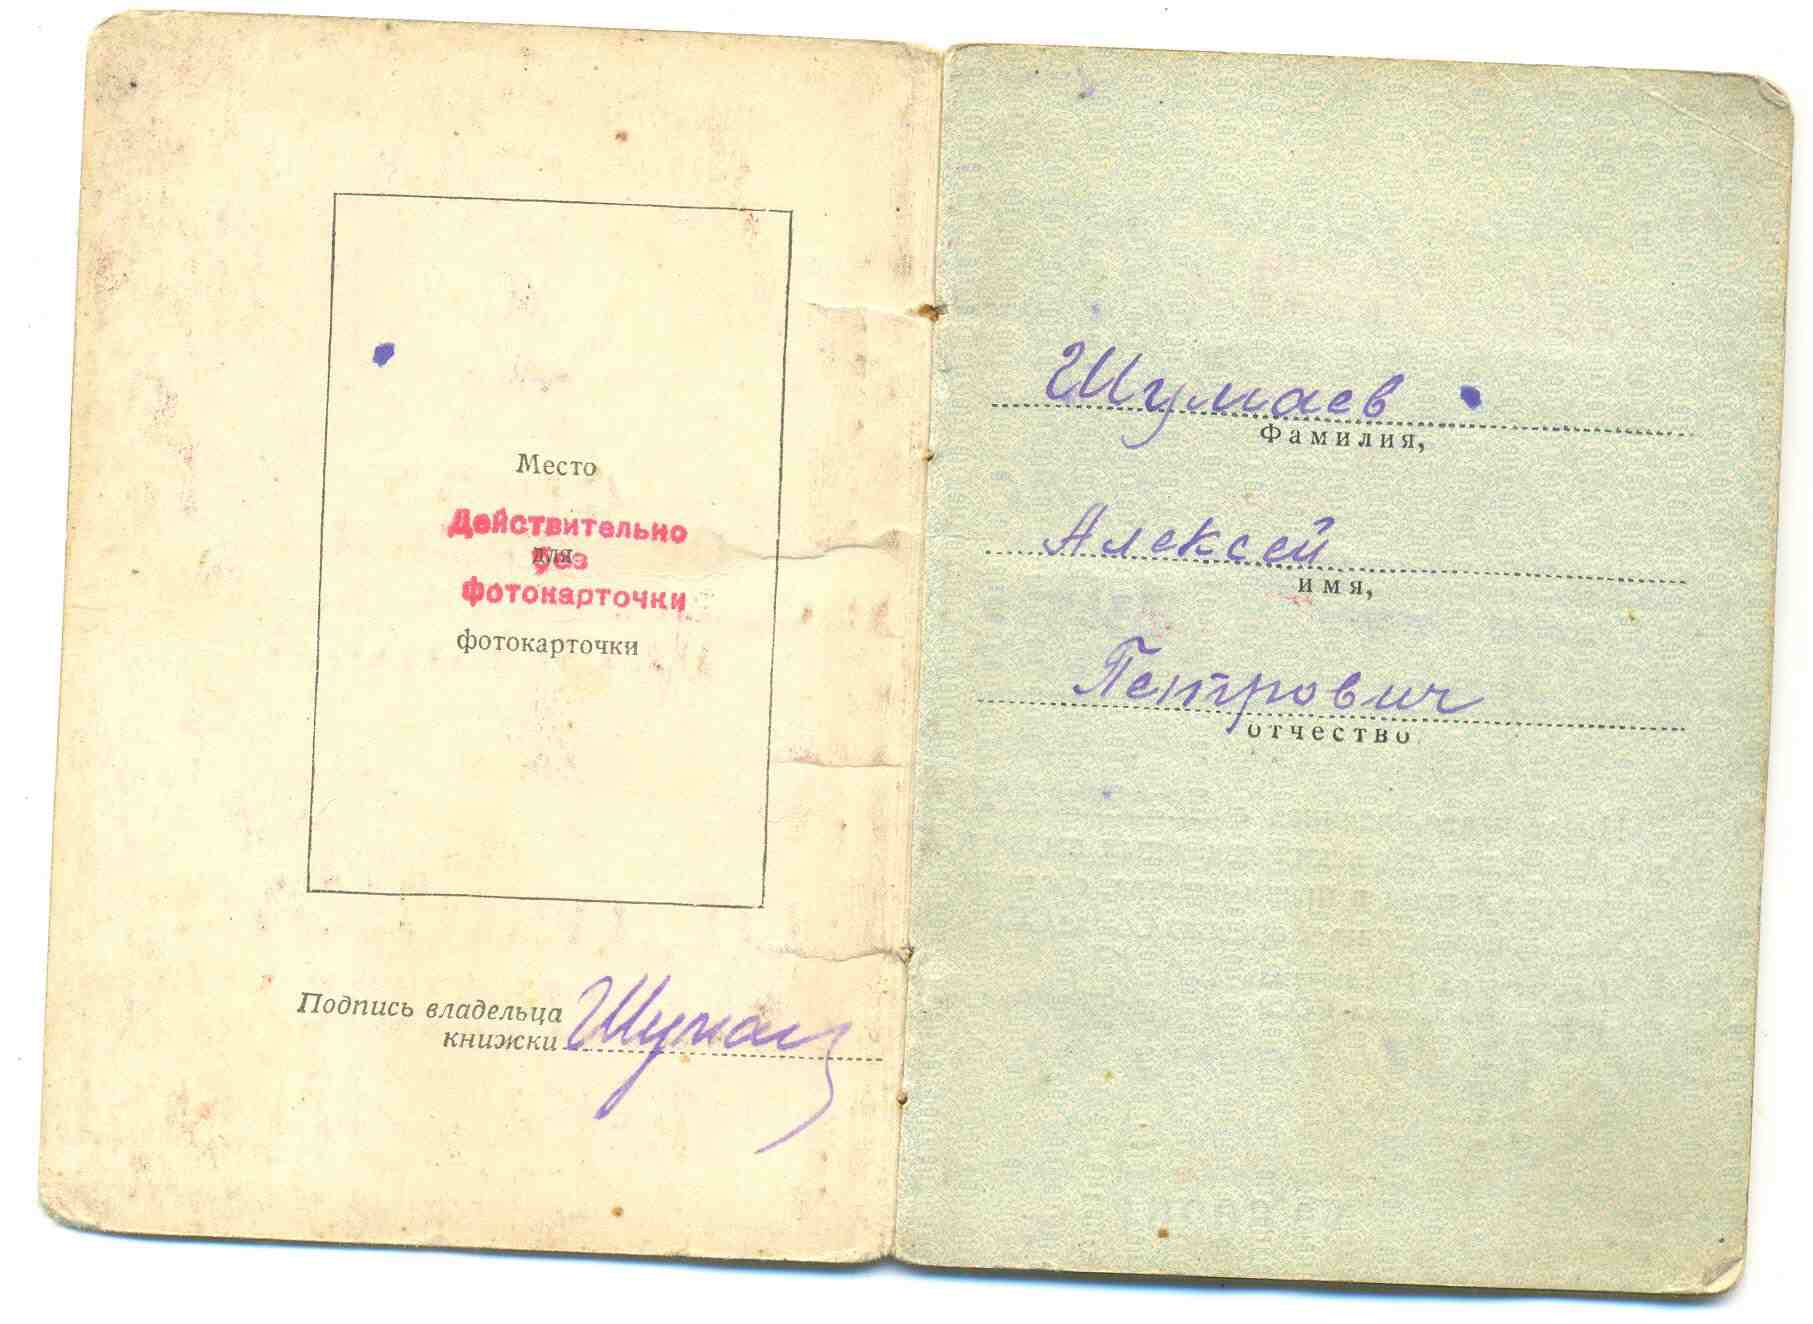 Место
Действительно
для
без
фотокарточки
фотокарточки
Подпись владельца
книжки Шумаев
Шумаев
Фамилия,
Алексей
имя,
Петрович
отчество